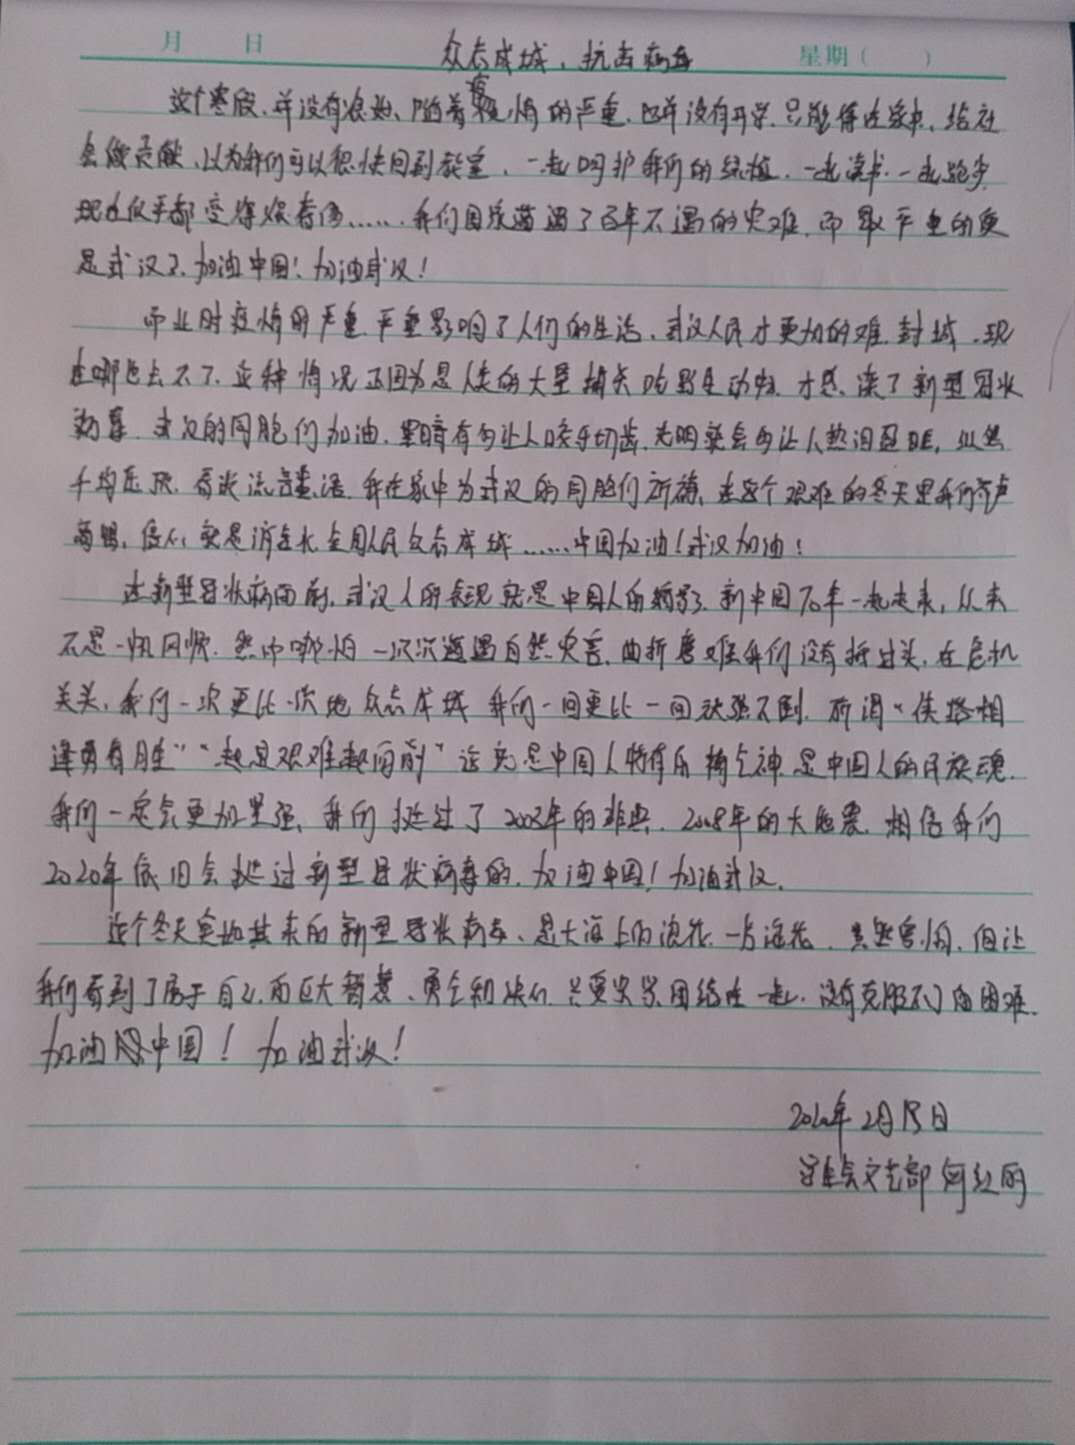 月 日 众志成城,抗击病毒 星期( )
这个寒假,并没有浪,随着疫情的严重,并没有开学,只能待在家中,给社
会做贡献,以为我们可以很快回到教室,一起呵护我们的绿植,一起读书,一起跑步
现在似乎都变得……我们国家遭遇了百年不遇的灾难,而最严重的便
是武汉了,加油中国!加油武汉!
而此时疫情的严重,严重影响了人们的生活,武汉人民才更加的难,封城,现
在哪也去不了,这种情况正因为是人类的大量捕杀吃野生动物,才感染了新型冠状
病毒,武汉的同胞们加油,黑暗有多让人咬牙切齿,光明就会多让人热泪盈眶,纵然
千均压顶,看淡流言蜚语,我在家中为武汉的同胞们祈祷,在这个艰难的冬天里我们齐声
高唱,信心,全国人民众志成城……中国加油!武汉加油!
在新型冠状病面前,武汉人的表现就是中国人的缩影,新中国70年一起走来,从来
不是一帆风顺,然而哪怕一次次遭遇自然灾害,曲折磨难我们没有低过头,在危机
关头,我们一次更比一次地众志成城 我们一回更比一回决强不倒,所谓"侠路相
逢勇者胜""越是艰难越向前"这就是中国人特有的精气神,是中国人的民族魂,
我们一定会更加坚强,我们挺过了2003年的非典,2008年的大地震,相信我们
2020年依旧会挺过新型冠状病毒的,加油中国!加油武汉,
这个冬天突如其来的新型冠状病毒,是大海上的浪花,一片浪花,虽然害怕,但让
我们看到了属于自己的巨大智慧、勇气和决心,只要紧紧团结在一起,没有克服不了的困难,
加油中国!加油武汉!
2020年2月15日
学生会文艺部 何红丽